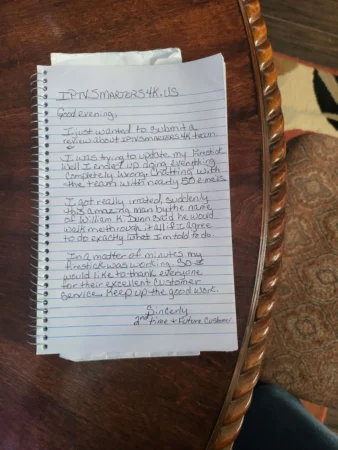 IPTVSMARTERS4K.US
Good evening,
I just wanted to submit a
review about IPTVSMARTERS4K team.
I was trying to update my Firestick
Well I ended up doing everything
Completely wrong. Chatting with
the team with nearly 50 emails
I got really irrated, suddenly
this amazing man by the name
of William K. Dunn said he would
walk me through it all if I agree
to do exactly what I'm told to do.
In a matter of minutes my
firestick was working. So I
would like to thank everyone
for their excellent customer
Service. Keep up the good work.
Sincerly
2nd time + Future Customer